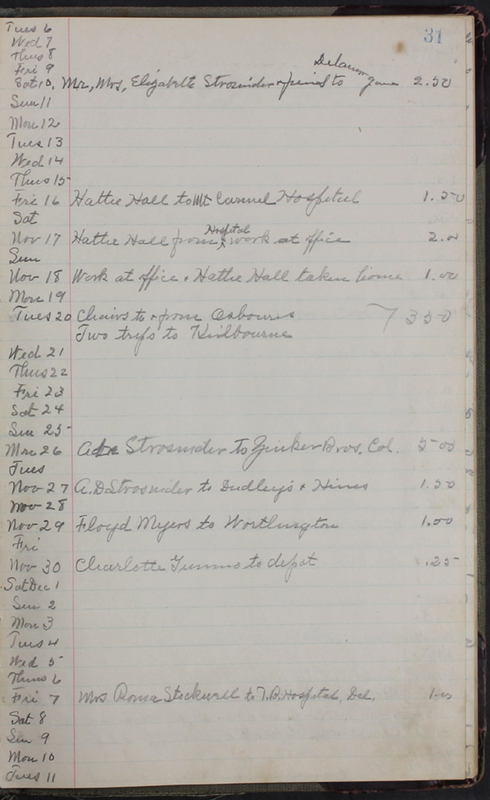 31
Tues 6
Wed 7
Thus 8
Fri 9
Delaware
Sat 10, Mr., Mrs, Elizabeth Strosnider & friend to game 2.50
Sun 11
Mon 12
Tues 13
Wed 14
Thus 15
Fri 16 Hattie Hall to Mt Carmel Hospital 1.50
Sat
Hospital
Nov 17 Hattie Hall from work at office 2.00
Sun
Nov 18 Work at office + Hattie Hall taken home 1.00
Mon 19
Tues 20 Chairs to + from Osbourns 3 50
Two trips to Kilbourne
Wed 21
Thus 22
Fri 23
Sat 24
Sun 25
Mon 26 Strosnider to Zinker Bros. Col. 5 00
Tues
Nov 27 A.D Strosnider to Dudley's + Hines 1.50
Nov 28
Nov 29 Floyd Myers to Worthington 1.00
Fri
Nov 30 Charlotte to depot .25
Sat Dec 1
Sun 2
Mon 3
Tues 4
Wed 5
Thus 6
Fri 7 Mrs Roma Stockwell to T.B. Hospital, Del. 1.00
Sat 8
Sun 9
Mon 10
Tues 11